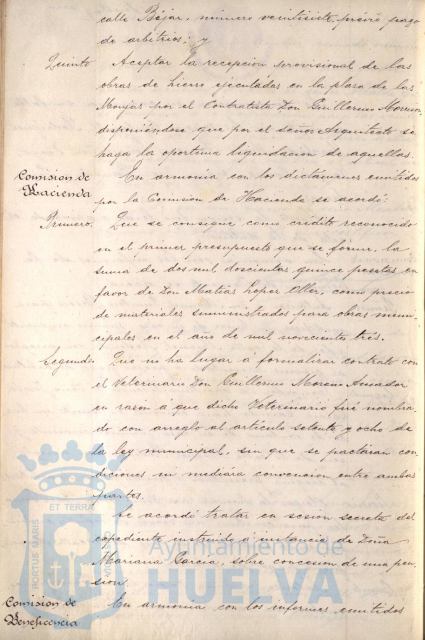 calle Béjar, número veintisiete, previo pago
de arbitrios; y
Quinto Aceptar la recepción provisional de las
obras de hierro ejecutadas en la plaza de las
Monjas por el Contratista Don Guillermo Moreno,
disponiéndose que por el señor Arquitecto se
haga la oportuna liquidación de aquellas.
Comisión de
Hacienda
En armonía con los dictámenes emitidos
por la Comisión de Hacienda se acordó:
Primero. Que se consigne como crédito reconocido
en el primer presupuesto que se forme, la
suma de dos mil doscientas quince pesetas en
favor de Don Matías López Oller, como precio
de materiales suministrados para obras muni-
cipales en el año de mil novecientos tres.
Segundo. Que no ha lugar á formalizar contrato con
el Veterinario Don Guillermo Moreno Amador
en razón á que dicho Veterinario fué nombra-
do con arreglo al artículo setenta y ocho de
la ley municipal, sin que se pactáran con-
diciones ni mediára convención entre ambas
partes.
Se acordó tratar en sesión secreta del
expediente instruido á instancia de Doña
Mariana García, sobre concesión de una pen-
sión.
Comisión de
Beneficencia
En armonía con los informes emitidos
PORTUS MARIS
ET TERRÆ
Ayuntamiento de
HUELVA